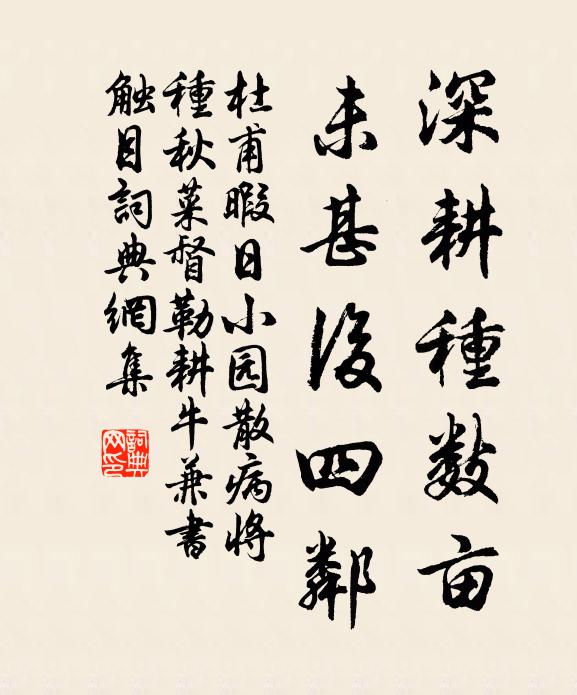 深耕種数亩
未甚後四鄰
杜甫暇日小园散病将
種秋菜督勒耕牛兼書
触目詞典網集
詞典网印